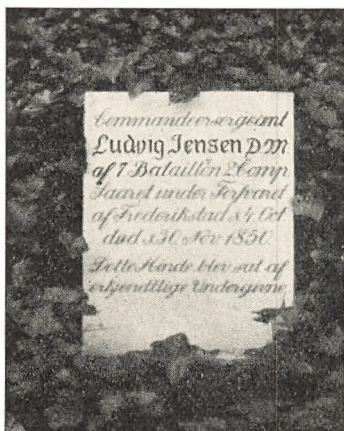 Commandeersergeant
Ludvig Jensen DM
af 7 Bataillon 2 Comp
Saaret under Forsvaret
af Frederikstad d. 4 Oct
død d. 30 Nov 1850.
Dette Minde blev sat af
erkjendtlige Undergivne